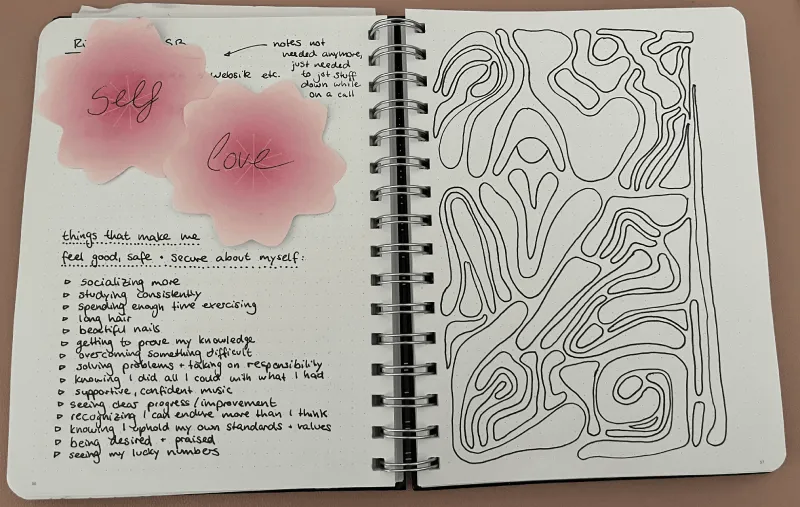 Ri
notes not
needed anymore,
just needed
to jot stuff
down while
on a call
website etc.
self
love
things that make me
feel good, safe + secure about myself:
socializing more
studying consistently
spending enough time exercising
long hair
beautiful nails
getting to prove my knowledge
overcoming something difficult
solving problems + taking on responsibility
knowing I did all I could with what I had
supportive, confident music
seeing clear progress/improvement
recognizing I can endure more than I think
knowing I uphold my own standards + values
being desired + praised
seeing my lucky numbers